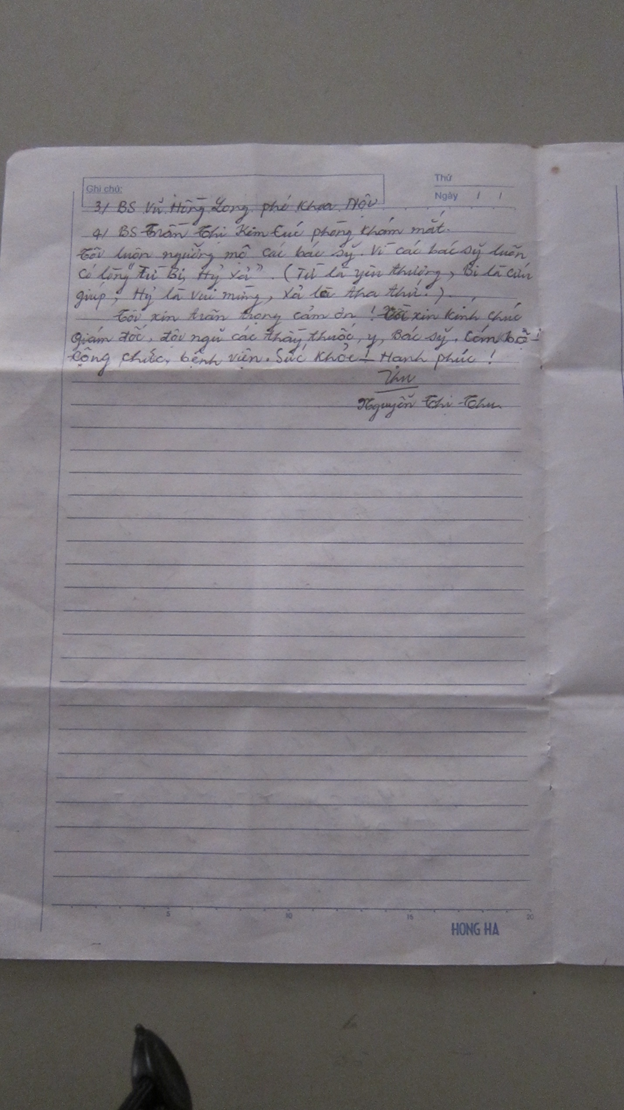 Ghi chú:
Thứ
Ngày / /
3/ BS Vũ Hồng Long phó khoa Nội
4/ BS Trần Thị Kim Cúc phòng khám mắt.
Tôi luôn ngưỡng mộ các bác sỹ. Vì các bác sỹ luôn
có lòng "Từ Bi, Hỷ xả". (Từ là yêu thương, Bi là cứu
giúp, Hỷ là vui mừng, xả là tha thứ.)
Tôi xin trân trọng cảm ơn! Tôi xin kính chúc
Giám đốc, đội ngũ các thầy thuốc, y, bác sỹ. Cám bộ
công chức, bệnh viện. Sức khỏe! Hạnh phúc!
Thu
Nguyễn Thị Thu
5 10 15 20
HONG HA